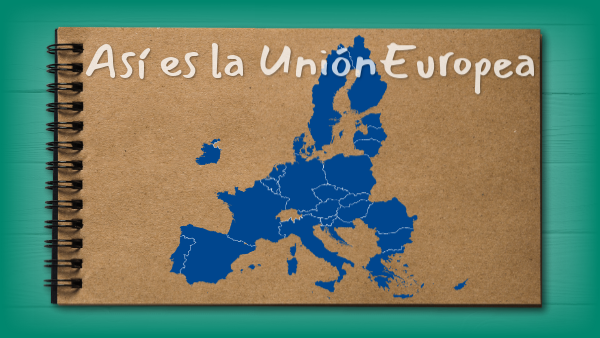 Así es la Unión Europea